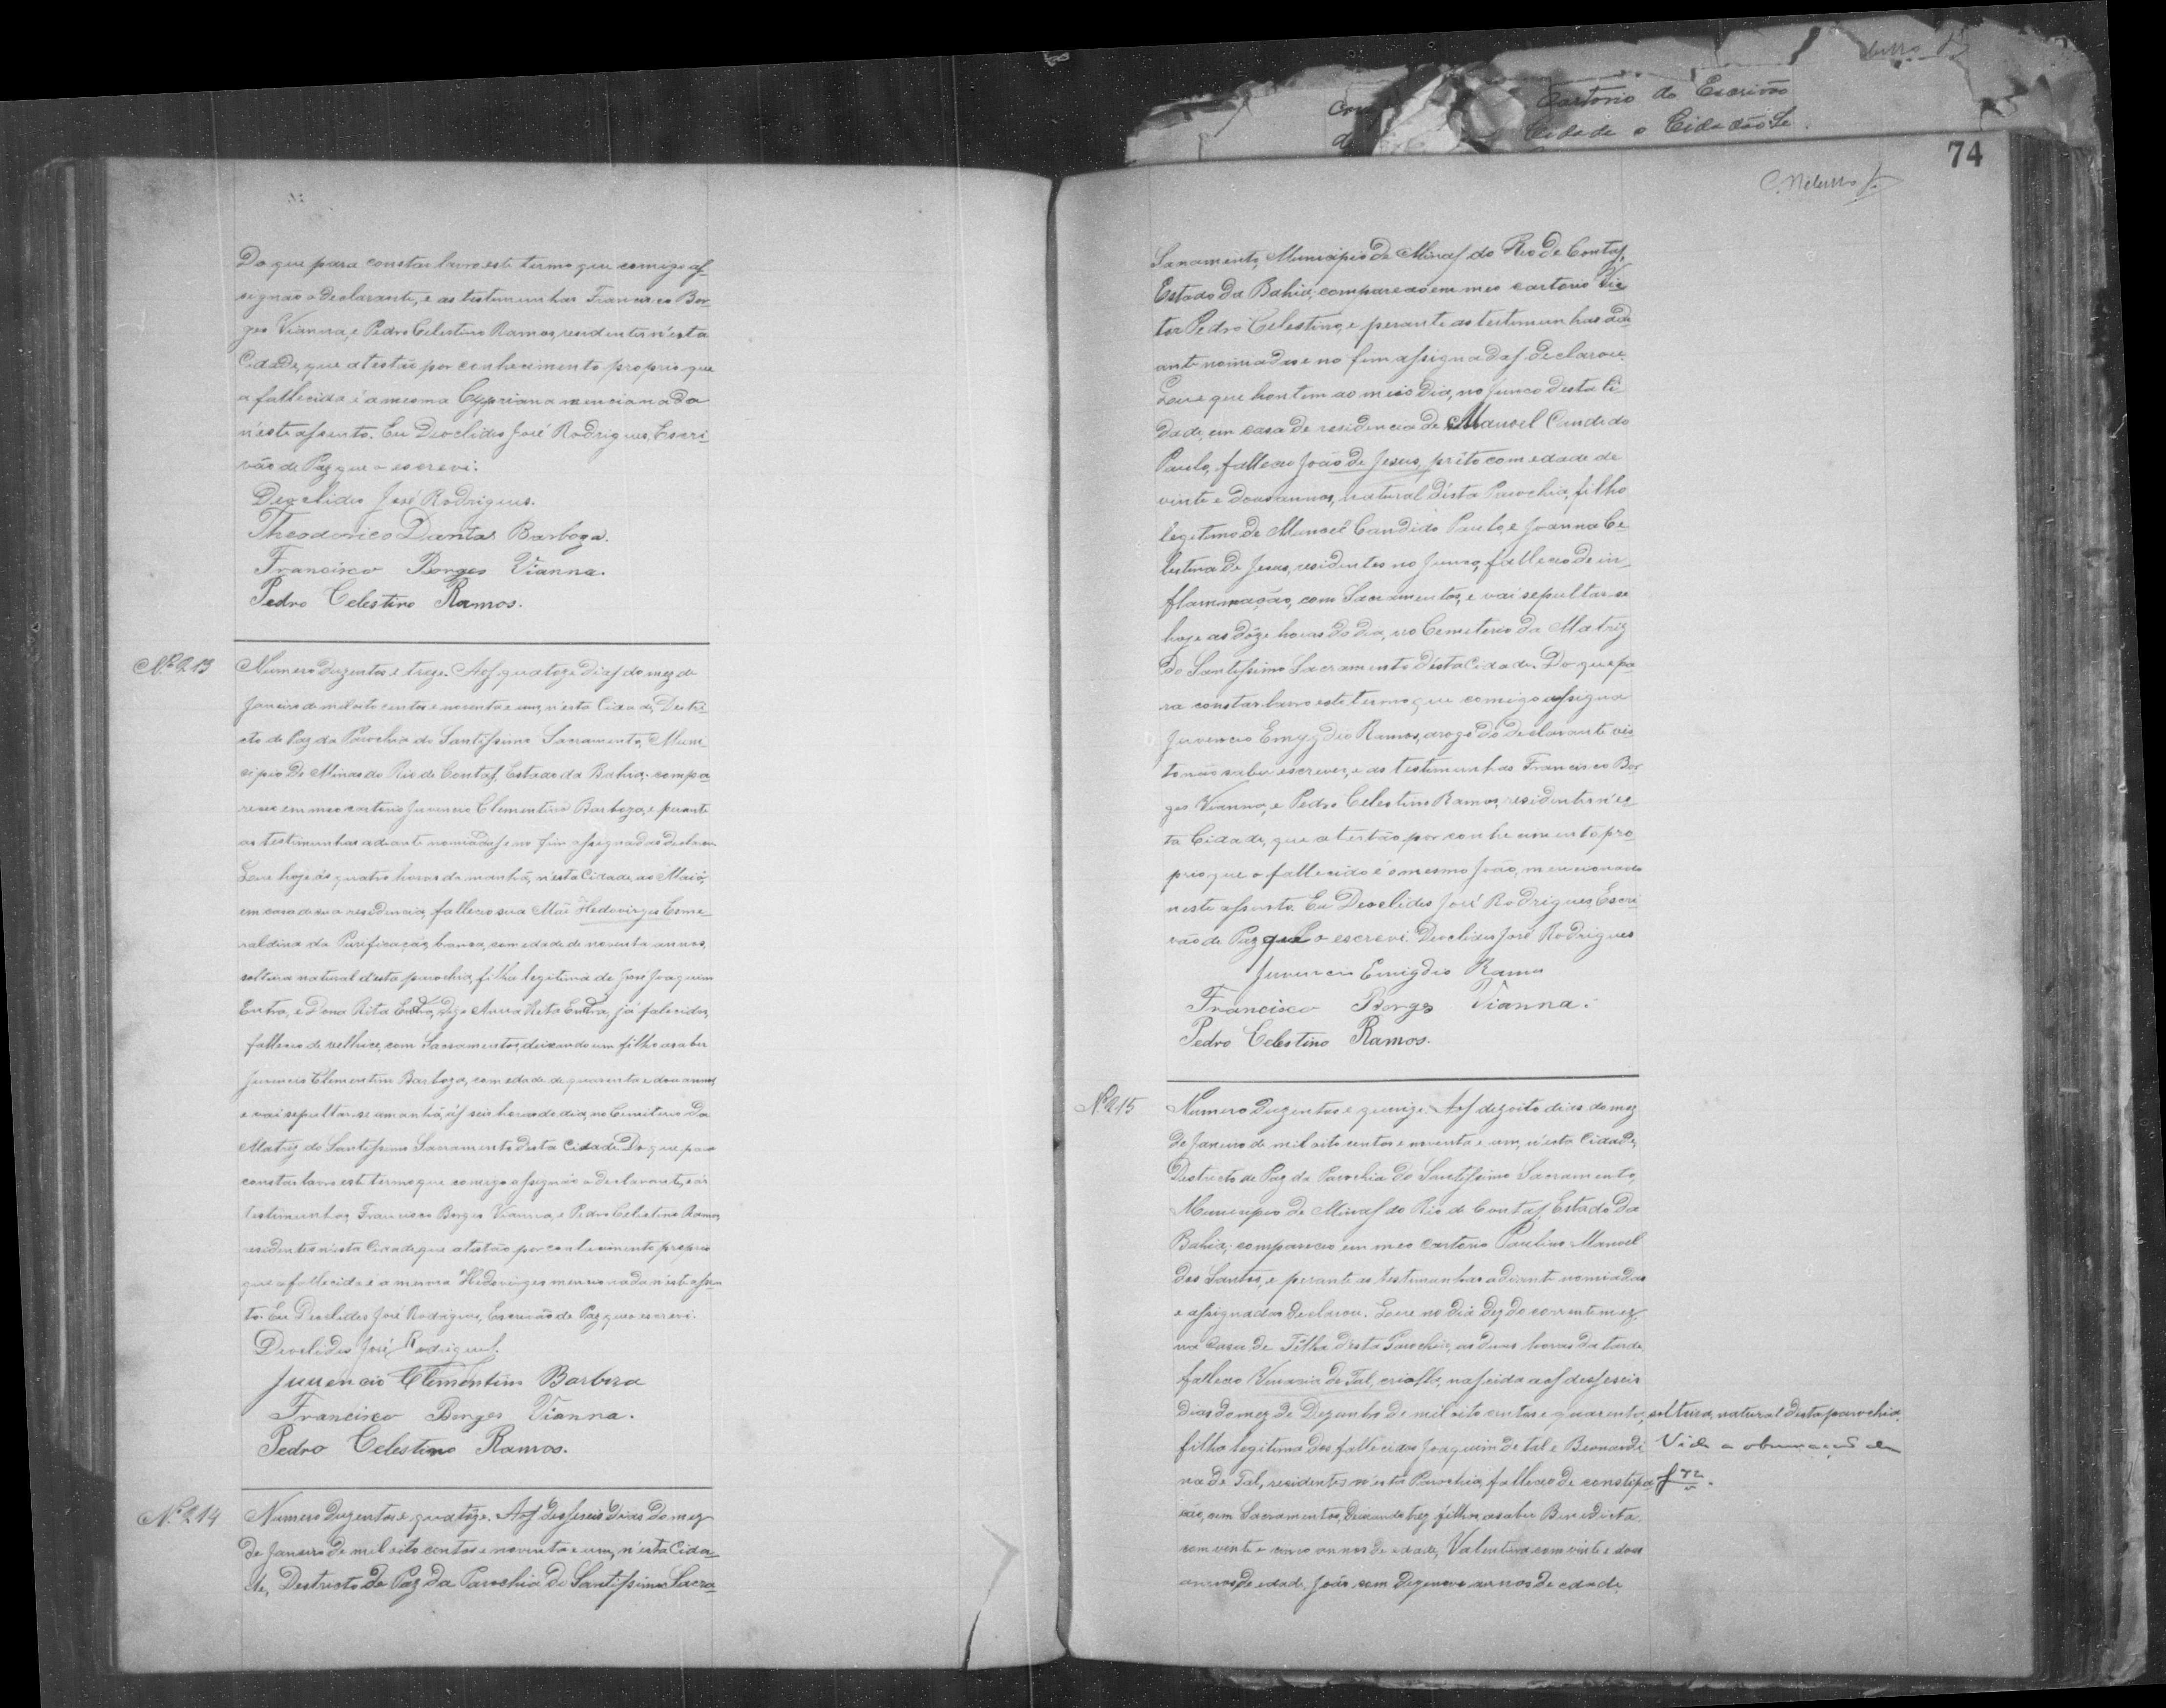 Do que para constar lavro este termo que comigo as-
signão o declarante, e as testimunhas Francisco Bor-
ges Vianna, e Pedro Celestino Ramos, residentes n'esta
Cidade, que atestão por conhecimento proprio que
a fallecida é a mesma Cypriana mencionada
n'este assento. Eu Deoclides José Rodrigues, Escri-
vão de Paz que o escrevi.
Deoclides José Rodrigues.
Theodorico Dantas Barboza.
Francisco Borges Vianna.
Pedro Celestino Ramos.
Nº 213
Numero duzentos e treze. Aos quatoze dias do mez de
Janeiro de mil oito centos e noventa e um, n'esta Cidade, Destri-
cto de Paz da Parochia do Santissimo Sacramento, Muni-
cipio de Minas do Rio de Contas, Estado da Bahia; compa-
receo em meo cartorio Juvencio Clementino Barboza, e perante
as testimunhas adiante nomiadas e no fim assignadas declarou
Que hoje ás quatro horas da manhã, n'esta Cidade, ao Maió,
em casa de sua residencia, falleceo sua Mãe Hedovirges Esme-
raldina da Purificação, branca, com edade de noventa annos,
solteira natural d'esta parochia, filha legitima de José Joaquim
Dutra, e Dona Rita Dutra, digo Anna Rita Dutra, já falecidos,
falleceo de velhice, com Sacramentos, deixando um filho a saber
Juvencio Clementino Barboza, com edade de quarenta e dous annos,
e vai sepultar-se amanhã, ás seis horas do dia, no Cemiterio da
Matriz do Santissimo Sacramento desta Cidade. Do que para
constar lavro este termo que comigo assignão o declarante, e as
testimunhas Francisco Borges Vianna, e Pedro Celestino Ramos,
residentes n'esta Cidade que atestão por conhecimento proprio
que a fallecida é a mesma Hedovirges mencionada n'este assen-
to. Eu Deoclides José Rodrigues, Escrivão de Paz que o escrevi.
Deoclides José Rodrigues.
Juvencio Clementino Barboza
Francisco Borges Vianna.
Pedro Celestino Ramos.
Nº 214
Numero duzentos e quatoze. Aos desseseis dias do mez
de Janeiro de mil oito centos e noventa e um, n'esta Cida-
de, Destricto de Paz da Parochia do Santissimo Sacra-
Cartorio do Escrivão
Cidade o Cidadão
74
Sacramento, Municipio de Minas do Rio de Contas,
Estado da Bahia, compareceo em meo cartorio Vic-
tor Pedro Celestino, e perante as testimunhas adi-
ante nomiadas e no fim assignadas declarou.
Que que hontem ao meio dia, no Junco desta Ci-
dade, em casa de residencia de Manoel Candido
Paulo, falleceo João de Jesus, prêto com edade de
vinte e dous annos, natural desta Parochia, filho
legitimo de Manoel Candido Paulo, e Joanna Ce-
lestina de Jesus, residentes no Junco, falleceo de in-
flammação, com Sacramentos, e vai sepultar-se
hoje as dóze horas do dia, no Cemiterio da Matriz
do Santissimo Sacramento desta Cidade. Do que pa-
ra constar lavro este termo que comigo assigna
Juvencio Emygdio Ramos, arogo do declarante vis-
to não saber escrever, e as testimunhas Francisco Bor-
ges Vianna, e Pedro Celestino Ramos, residentes n'es-
ta Cidade, que atestão por conhecimento pro-
prio que o fallecido é o mesmo João, mencionado
neste assento. Eu Deoclides José Rodrigues, Escri-
vão de Paz que o escrevi. Deoclides José Rodrigues
Juvencio Emigdio Ramos
Francisco Borges Vianna.
Pedro Celestino Ramos.
Nº 215
Numero Duzentos e quinze. Aos dezoito dias do mez
de Janeiro de mil oito centos e noventa e um, n'esta Cidade,
Destricto de Paz da Parochia do Santissimo Sacramento,
Municipio de Minas do Rio de Contas Estado da
Bahia; compareceo em meo Cartorio Paulino Manoel
dos Santos, e perante as testimunhas adiante nomiadas
e assignadas declarou. Que no dia dez do corrente mez,
na Casa de Telha desta Parochia, as duas horas da tarde,
falleceo Venancia de Tal, crioula, nascida aos desseseis
dias do mez de Dezembro de mil oito centos e quarenta, solteira, natural desta parochia,
filha legitima dos fallecidos Joaquim de tal e Bernardi-
na de Tal, residentes n'esta Parochia, falleceo de constipa-
ção, sem Sacramentos, deixando trez filhos a saber Benedicta
com vinte e cinco annos de edade, Valentina com vinte e dous
annos de edade, João com dezenove annos de edade,
Vide a observação em
f 72